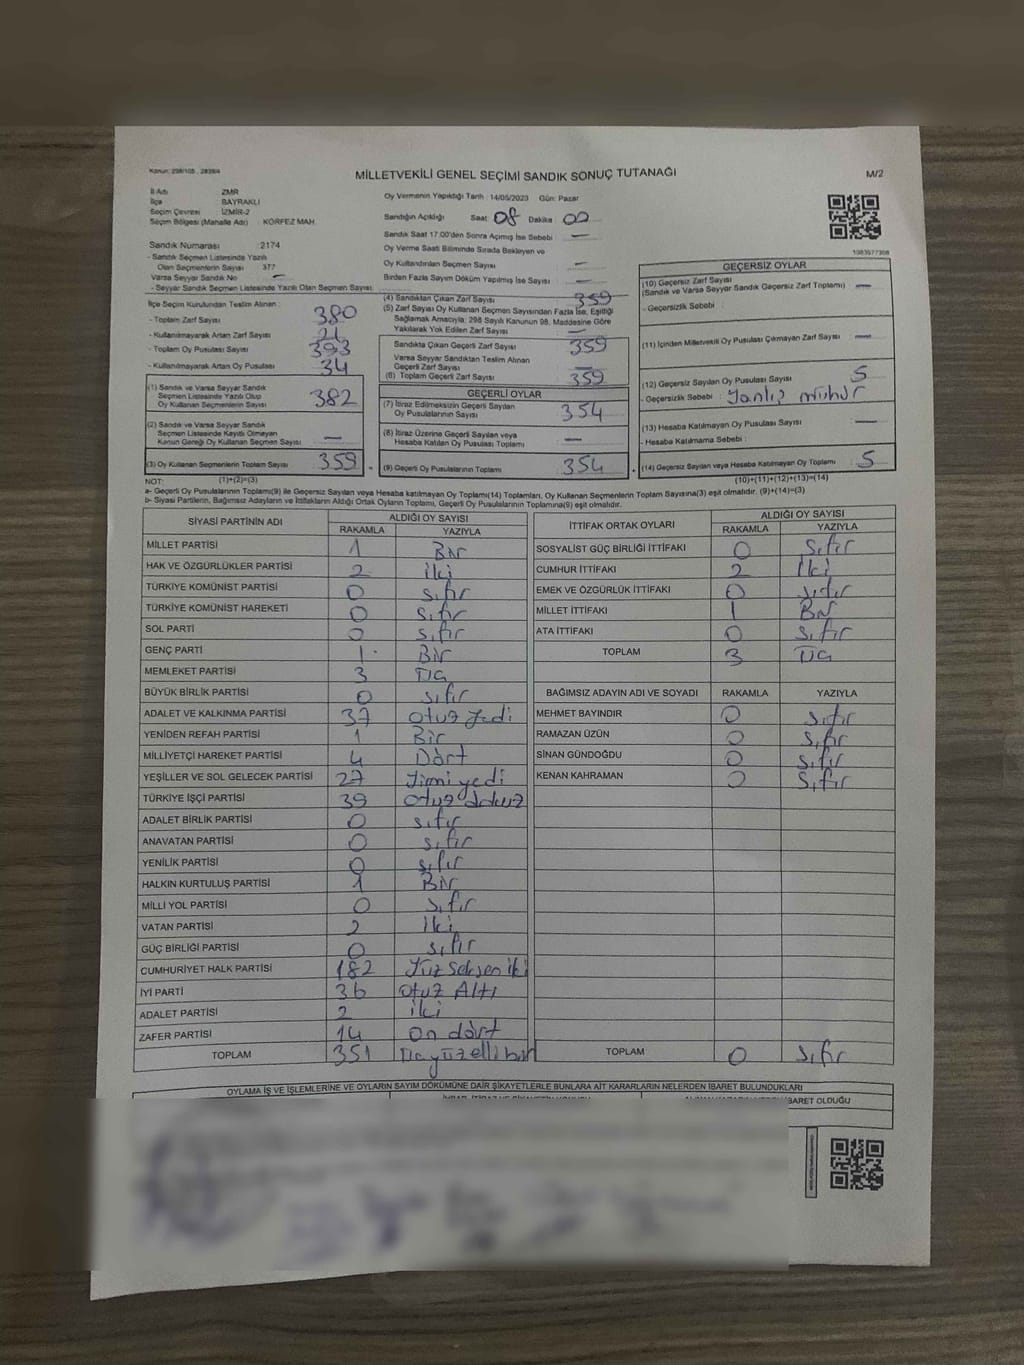 Kanun: 298/105 , 2839/4
MİLLETVEKİLİ GENEL SEÇİMİ SANDIK SONUÇ TUTANAĞI
M/2
İl Adı ZMR
İlçe BAYRAKLI
Seçim Çevresi İZMİR-2
Seçim Bölgesi (Mahalle Adı) : KÖRFEZ MAH.
Sandık Numarası : 2174
- Sandık Seçmen Listesinde Yazılı
Olan Seçmenlerin Sayısı 377
Varsa Seyyar Sandık No —
- Seyyar Sandık Seçmen Listesinde Yazılı Olan Seçmen Sayısı
Oy Vermenin Yapıldığı Tarih : 14/05/2023 Gün: Pazar
Sandığın Açıldığı Saat 08 Dakika : 00
Sandık Saat 17.00'den Sonra Açılmış İse Sebebi : —
Oy Verme Saati Bitiminde Sırada Bekleyen ve
Oy Kullandırılan Seçmen Sayısı —
Birden Fazla Sayım Döküm Yapılmış İse Sayısı : —
İlçe Seçim Kurulundan Teslim Alınan :
- Toplam Zarf Sayısı 380
- Kullanılmayarak Artan Zarf Sayısı 21
- Toplam Oy Pusulası Sayısı 393
- Kullanılmayarak Artan Oy Pusulası 34
(1) Sandık ve Varsa Seyyar Sandık
Seçmen Listesinde Yazılı Olup
Oy Kullanan Seçmenlerin Sayısı 382
(2) Sandık ve Varsa Seyyar Sandık
Seçmen Listesinde Kayıtlı Olmayan
Kanun Gereği Oy Kullanan Seçmen Sayısı —
(3) Oy Kullanan Seçmenlerin Toplam Sayısı 359
(1)+(2)=(3)
(4) Sandıktan Çıkan Zarf Sayısı 359
(5) Zarf Sayısı Oy Kullanan Seçmen Sayısından Fazla İse, Eşitliği
Sağlamak Amacıyla; 298 Sayılı Kanunun 98. Maddesine Göre
Yakılarak Yok Edilen Zarf Sayısı —
Sandıkta Çıkan Geçerli Zarf Sayısı 359
Varsa Seyyar Sandıktan Teslim Alınan
Geçerli Zarf Sayısı —
(6) Toplam Geçerli Zarf Sayısı 359
GEÇERLİ OYLAR
(7) İtiraz Edilmeksizin Geçerli Sayılan
Oy Pusulalarının Sayısı 354
(8) İtiraz Üzerine Geçerli Sayılan veya
Hesaba Katılan Oy Pusulası Toplamı —
(9) Geçerli Oy Pusulalarının Toplamı 354
1083977308
GEÇERSİZ OYLAR
(10) Geçersiz Zarf Sayısı
(Sandık ve Varsa Seyyar Sandık Geçersiz Zarf Toplamı) —
- Geçersizlik Sebebi :
(11) İçinden Milletvekili Oy Pusulası Çıkmayan Zarf Sayısı —
(12) Geçersiz Sayılan Oy Pusulası Sayısı 5
- Geçersizlik Sebebi : Yanlış mühür
(13) Hesaba Katılmayan Oy Pusulası Sayısı —
- Hesaba Katılmama Sebebi :
(14) Geçersiz Sayılan veya Hesaba Katılmayan Oy Toplamı 5
(10)+(11)+(12)+(13)=(14)
NOT:
a- Geçerli Oy Pusulalarının Toplamı(9) ile Geçersiz Sayılan veya Hesaba katılmayan Oy Toplamı(14) Toplamları, Oy Kullanan Seçmenlerin Toplam Sayısına(3) eşit olmalıdır. (9)+(14)=(3)
b- Siyasi Partilerin, Bağımsız Adayların ve İttifakların Aldığı Ortak Oyların Toplamı, Geçerli Oy Pusulalarının Toplamına(9) eşit olmalıdır.
SİYASİ PARTİNİN ADI ALDIĞI OY SAYISI
RAKAMLA YAZIYLA
MİLLET PARTİSİ 1 Bir
HAK VE ÖZGÜRLÜKLER PARTİSİ 2 iki
TÜRKİYE KOMÜNİST PARTİSİ 0 sıfır
TÜRKİYE KOMÜNİST HAREKETİ 0 sıfır
SOL PARTİ 0 sıfır
GENÇ PARTİ 1 Bir
MEMLEKET PARTİSİ 3 Üç
BÜYÜK BİRLİK PARTİSİ 0 sıfır
ADALET VE KALKINMA PARTİSİ 37 otuz yedi
YENİDEN REFAH PARTİSİ 1 Bir
MİLLİYETÇİ HAREKET PARTİSİ 4 Dört
YEŞİLLER VE SOL GELECEK PARTİSİ 27 yirmi yedi
TÜRKİYE İŞÇİ PARTİSİ 39 otuz dokuz
ADALET BİRLİK PARTİSİ 0 sıfır
ANAVATAN PARTİSİ 0 sıfır
YENİLİK PARTİSİ 0 sıfır
HALKIN KURTULUŞ PARTİSİ 1 Bir
MİLLİ YOL PARTİSİ 0 sıfır
VATAN PARTİSİ 2 iki
GÜÇ BİRLİĞİ PARTİSİ 0 sıfır
CUMHURİYET HALK PARTİSİ 182 Yüz seksen iki
İYİ PARTİ 36 otuz Altı
ADALET PARTİSİ 2 iki
ZAFER PARTİSİ 14 on dört
TOPLAM 351 Üçyüzellibir
İTTİFAK ORTAK OYLARI ALDIĞI OY SAYISI
RAKAMLA YAZIYLA
SOSYALİST GÜÇ BİRLİĞİ İTTİFAKI 0 sıfır
CUMHUR İTTİFAKI 2 iki
EMEK VE ÖZGÜRLÜK İTTİFAKI 0 sıfır
MİLLET İTTİFAKI 1 Bir
ATA İTTİFAKI 0 sıfır
TOPLAM 3 Üç
BAĞIMSIZ ADAYIN ADI VE SOYADI RAKAMLA YAZIYLA
MEHMET BAYINDIR 0 sıfır
RAMAZAN ÜZÜN 0 sıfır
SİNAN GÜNDOĞDU 0 sıfır
KENAN KAHRAMAN 0 sıfır
TOPLAM 0 sıfır
OYLAMA İŞ VE İŞLEMLERİNE VE OYLARIN SAYIM DÖKÜMÜNE DAİR ŞİKAYETLERLE BUNLARA AİT KARARLARIN NELERDEN İBARET BULUNDUKLARI
İBARET OLDUĞU